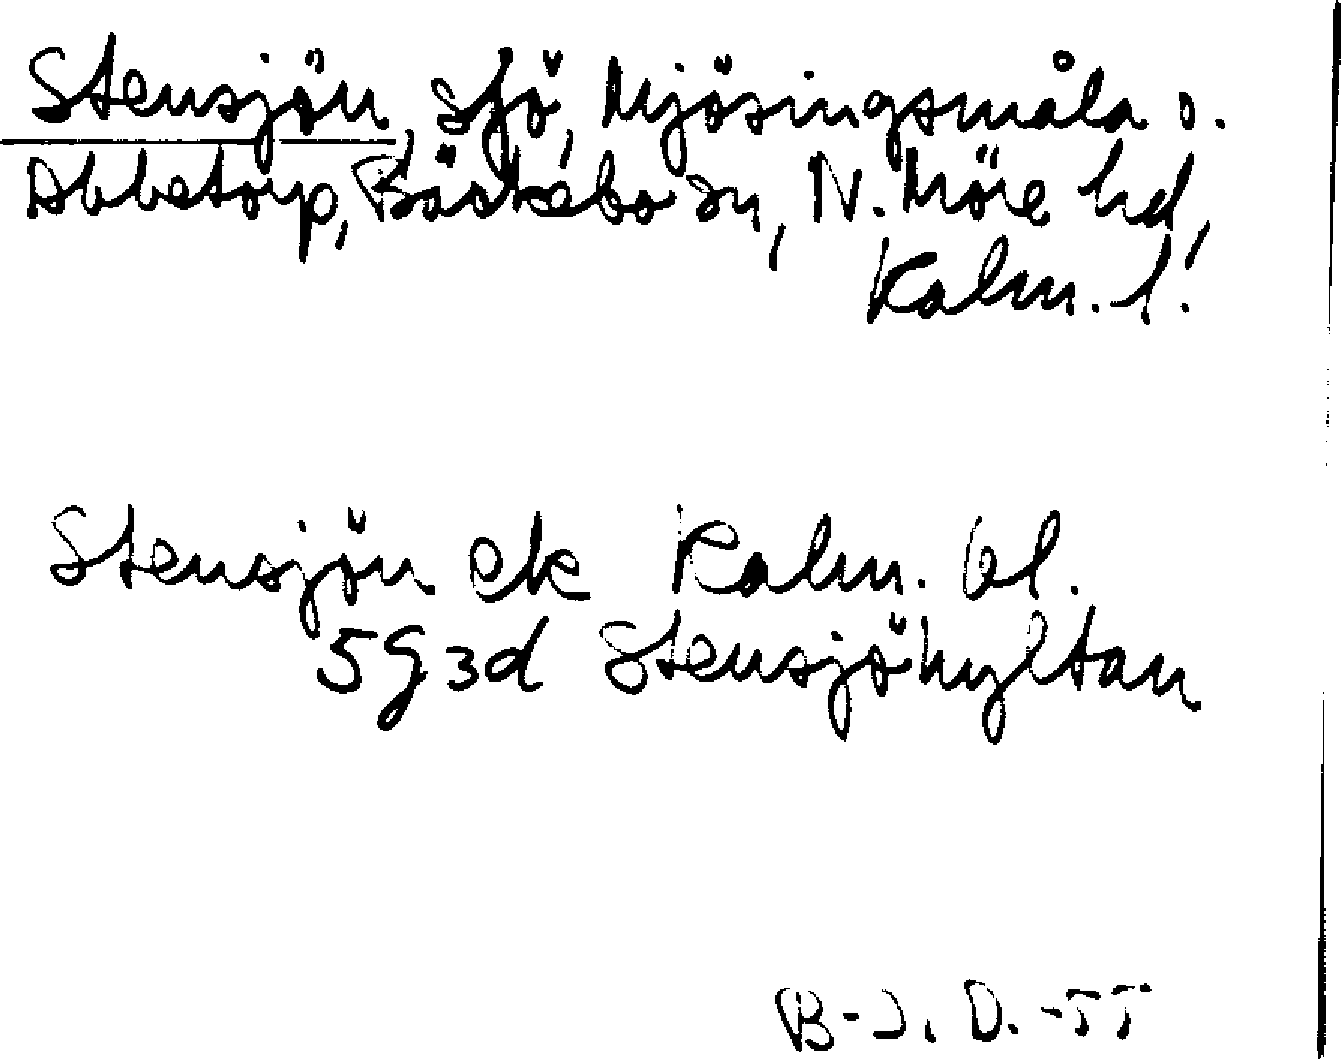 Stensjön, sjö, Mjösingsmåla o.
Abbetorp, Bäckebo sn, N. Möre hd,
Kalm. l.
Stensjön ek Kalm. bl.
5G3d Stensjöhyltan
B-J. D. -77